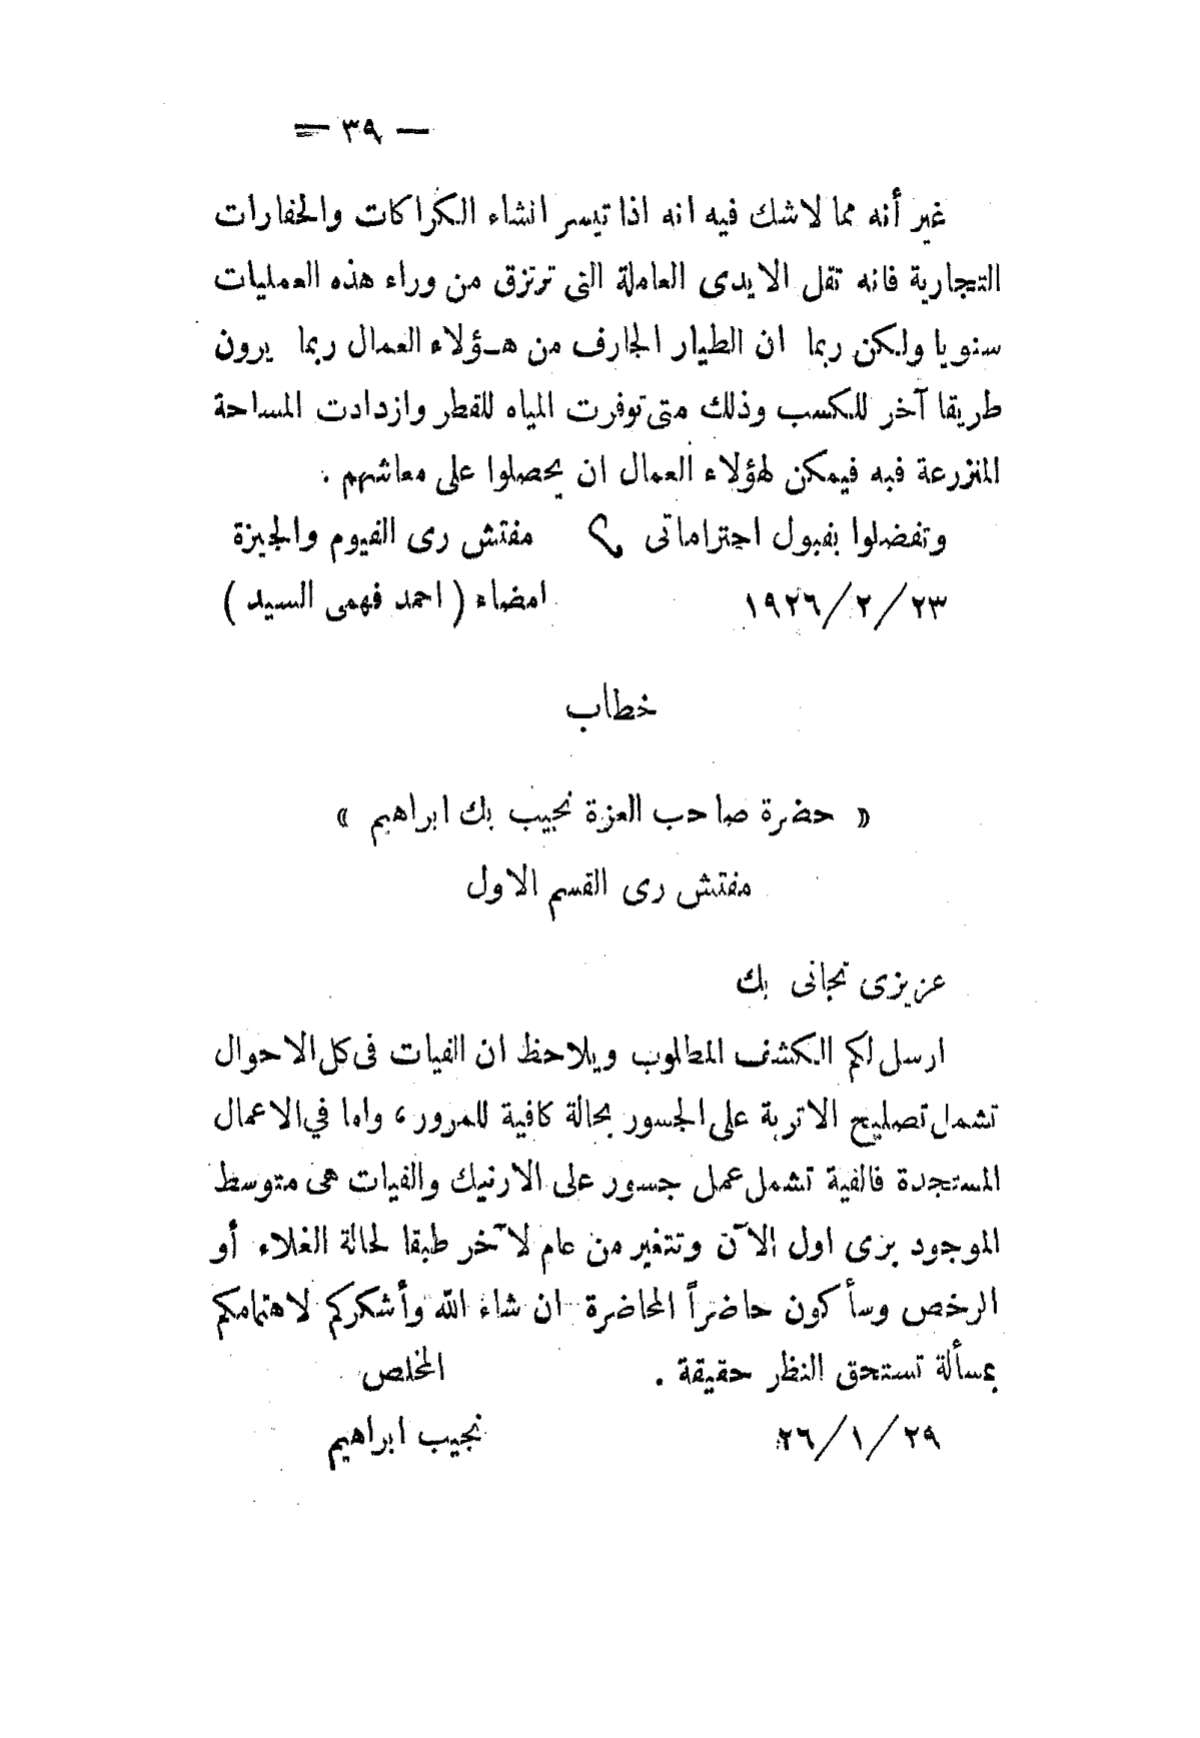 — ٣٩ —
غير أنه مما لاشك فيه انه اذا تيسر انشاء الكراكات والحفارات
التجارية فانه تقل الايدى العاملة التى ترتزق من وراء هذه العمليات
سنويا ولكن ربما ان الطيار الجارف من هـؤلاء العمال ربما يرون
طريقا آخر للكسب وذلك متى توفرت المياه للقطر وازدادت المساحة
المنزرعة فيه فيمكن لهؤلاء العمال ان يحصلوا على معاشهم .
وتفضلوا بقبول احتراماتى مفتش رى الفيوم والجيزة
٢٣/٢/١٩٢٦ امضاء ( احمد فهمى السيد )
خطاب
« حضرة صاحب العزة نجيب بك ابراهيم »
مفتش رى القسم الاول
عزيزى نجاتى بك
ارسل لكم الكشف المطلوب ويلاحظ ان الفيات فى كل الاحوال
تشمل تصليح الاتربة على الجسور بحالة كافية للمرور ، واما في الاعمال
المستجدة فالفية تشمل عمل جسور على الارنيك والفيات هى متوسط
الموجود بزى اول الآن وتتغير من عام لآخر طبقا لحالة الغلاء أو
الرخص وسأكون حاضراً المحاضرة ان شاء الله وأشكركم لاهتمامكم
بمسألة تستحق النظر حقيقة . المخلص
٢٩/١/٢٦ نجيب ابراهيم